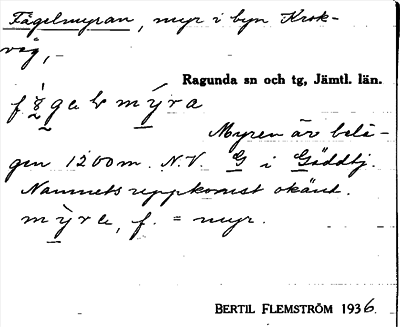 Fågelmyran, myr i byn Krok-
våg,
Ragunda sn och tg, Jämtl. län.
Myren är belä-
gen 1200 m. N.V. G i Gåddtj.
Namnets uppkomst okänd.
f. = myr.
BERTIL FLEMSTRÖM 1936.